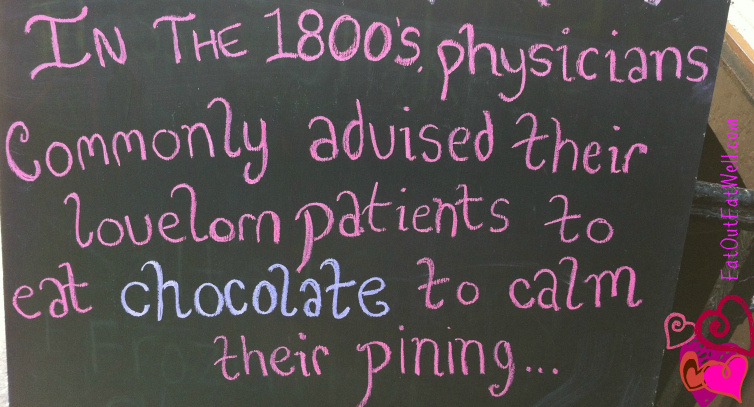 In The 1800's, physicians
Commonly advised their
lovelorn patients to
eat chocolate to calm
their pining...
EatOutEatWell.com